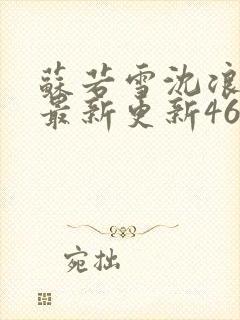 蘇若雪沈浪
最新更新46
宛拙